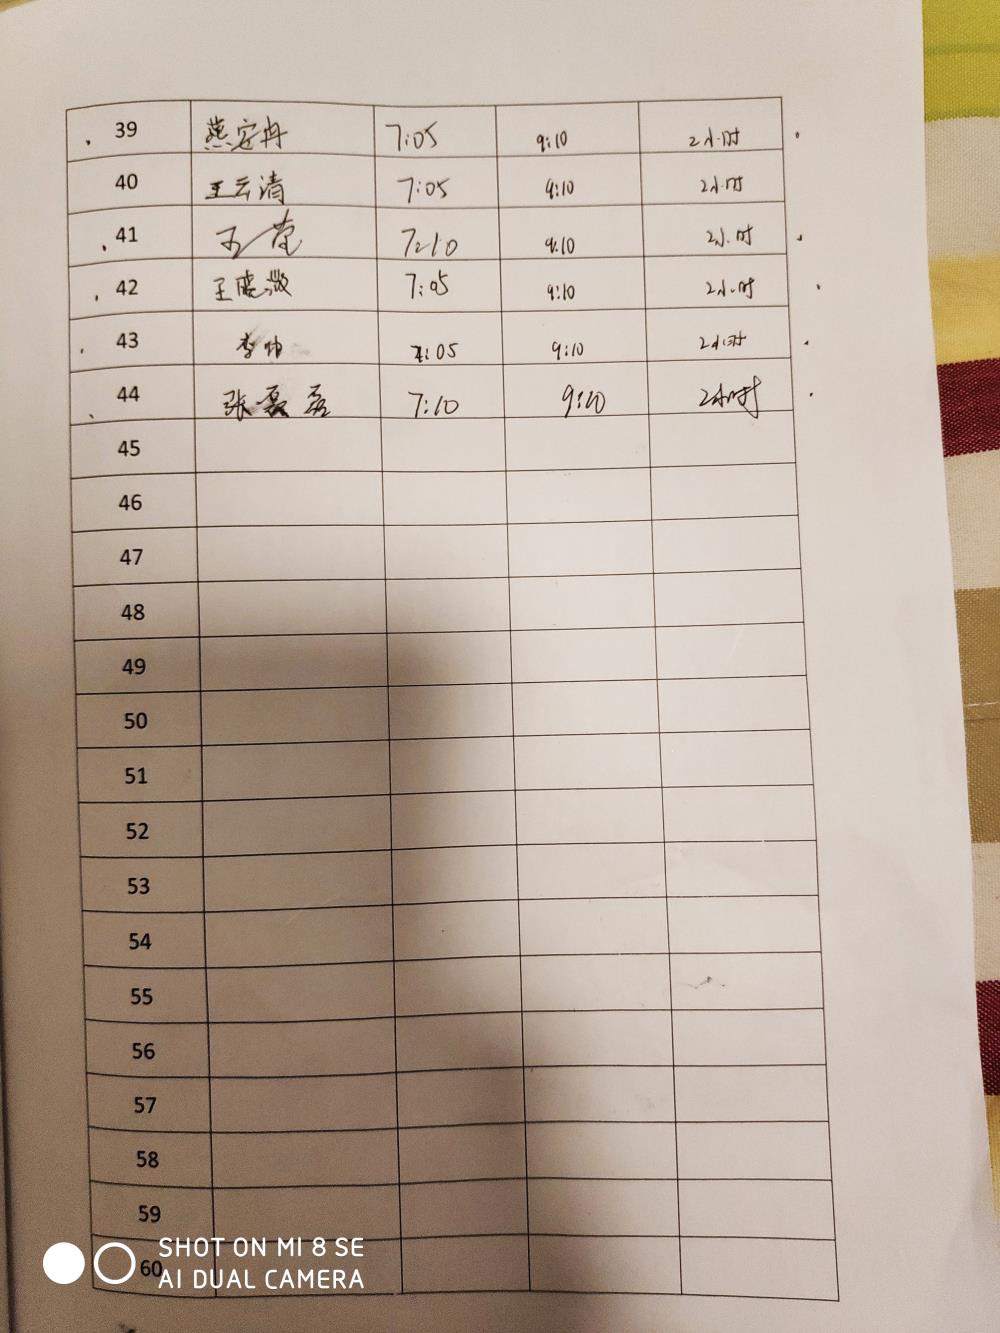 39 燕定冉 7:05 9:10 2小时
40 王云清 7:05 9:10 2小时
41 7:10 9:10 2小时
42 王晓微 7:05 9:10 2小时
43 李 7:05 9:10 2小时
44 张磊磊 7:10 9:10 2小时
45
46
47
48
49
50
51
52
53
54
55
56
57
58
59
60
SHOT ON MI 8 SE
AI DUAL CAMERA